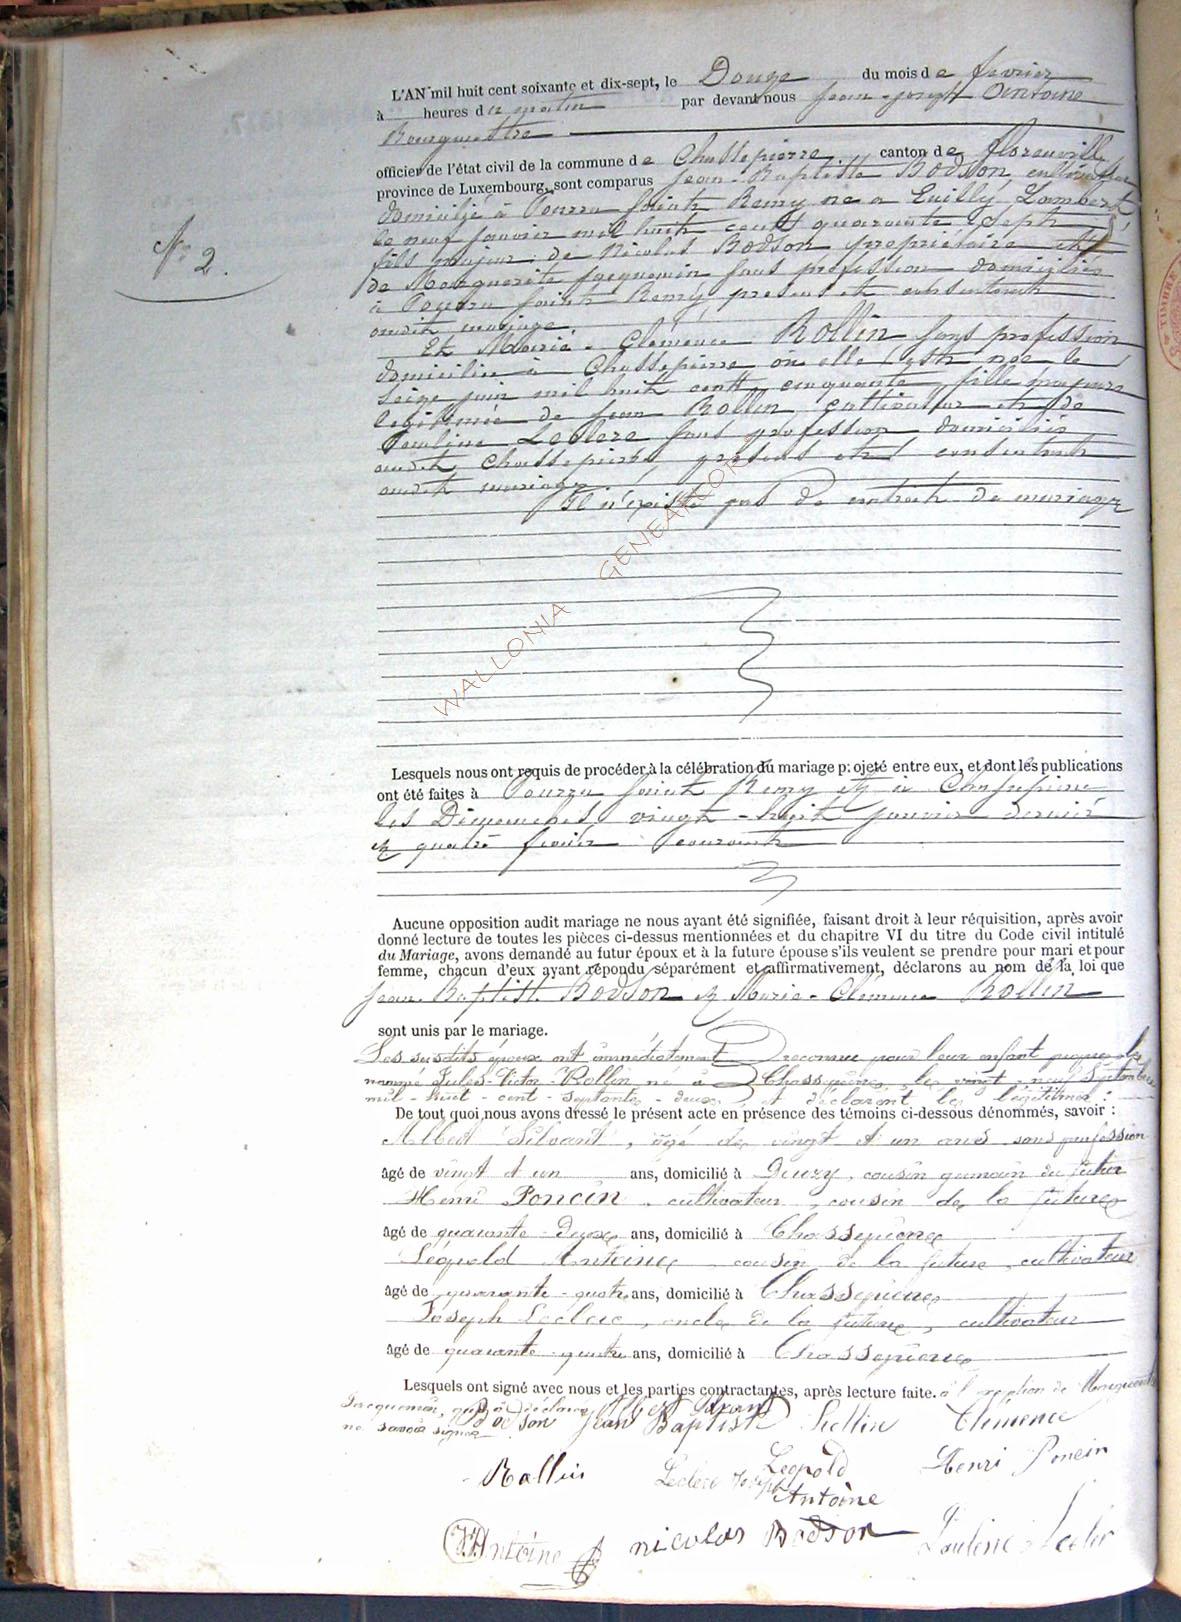 N° 2.
L'AN mil huit cent soixante et dix-sept, le Douze du mois de fevrier
à heures du matin par devant nous Jean-Joseph Antoine
Bourguestre
officier de l'état civil de la commune de Chassepierre canton de florenville
province de Luxembourg, sont comparus Jean-Baptiste BODSON, cultivateur
domicilié à Pourru Saint Remy né a Euilly Lombert
le neuf janvier mil huit cent quarante sept
fils majeur de Nicolas BODSON propriétaire et
de Marguerite Jacquemin sans profession domiciliés
à Pourru Saint Remy, présens et consentant
audit mariage.
Et Marie-Clémence ROLLIN sans profession
domiciliée à Chassepierre où elle est née le
seize juin mil huit cent cinquante, fille majeure
légitimée de Jean ROLLIN cultivateur et de
Pauline Leclere sans profession domiciliés
audit Chassepierre, présens et consentant
audit mariage
Il n'existe pas de contrat de mariage
WALLONIA GENEANOR
Lesquels nous ont requis de procéder à la célébration du mariage projeté entre eux, et dont les publications
ont été faites à Pourru Saint Remy et à Chassepierre
les Dimanches vingt-huit janvier dernier
et quatre fevrier courant
Aucune opposition audit mariage ne nous ayant été signifiée, faisant droit à leur réquisition, après avoir
donné lecture de toutes les pièces ci-dessus mentionnées et du chapitre VI du titre du Code civil intitulé
du Mariage, avons demandé au futur époux et à la future épouse s'ils veulent se prendre pour mari et pour
femme, chacun d'eux ayant répondu séparément et affirmativement, déclarons au nom de la loi que
Jean-Baptist. BODSON et Marie-Clémence ROLLIN
sont unis par le mariage.
Les susdits époux ont immédiatement reconnu pour leur enfant
nommé Jules-Victor-Rollin né à Chassepierre, le vingt-neuf Septembre
mil-huit-cent-septante-deux, et déclarent le légitimer :
De tout quoi, nous avons dressé le présent acte en présence des témoins ci-dessous dénommés, savoir :
Albert Silvant, âgé de vingt et un ans sans profession
âgé de vingt et un ans, domicilié à Douzy, cousin germain du futur
Henri Poncin, cultivateur, cousin de la future
âgé de quarante-deux ans, domicilié à Chassepierre
Léopold Antoine cousin de la future, cultivateur
âgé de quarante-quatre ans, domicilié à Chassepierre
Joseph Leclerc, oncle de la future, cultivateur
âgé de quarante-quatre ans, domicilié à Chassepierre
Lesquels ont signé avec nous et les parties contractantes, après lecture faite. à l'exception de Marguerite
Jacquemin, qui a déclaré
ne savoir signer
Albert Silvant
Bodson Jean Baptiste Rollin Clémence
Rollin Leclerc Joseph Léopold Antoine Henri Poncin
JJ Antoine nicolas Bodson Pauline Lecler
TIMBRE